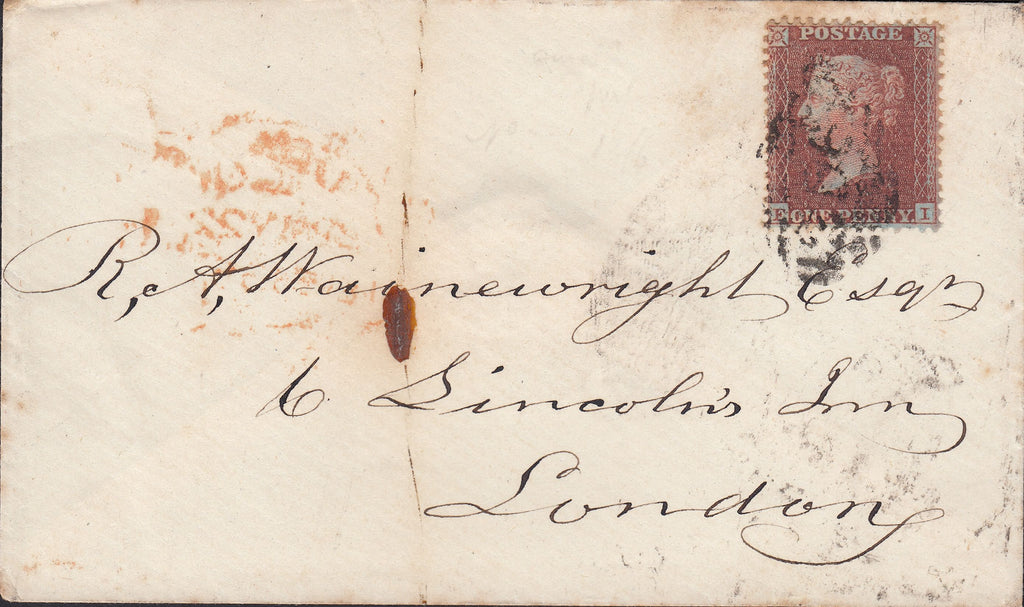 POSTAGE
E ONE PENNY. I
R, A, Wainewright Esqr
6 Lincoln's Inn
London